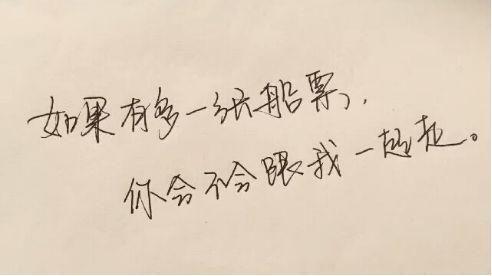 如果有多一张船票，
你会不会跟我一起走。